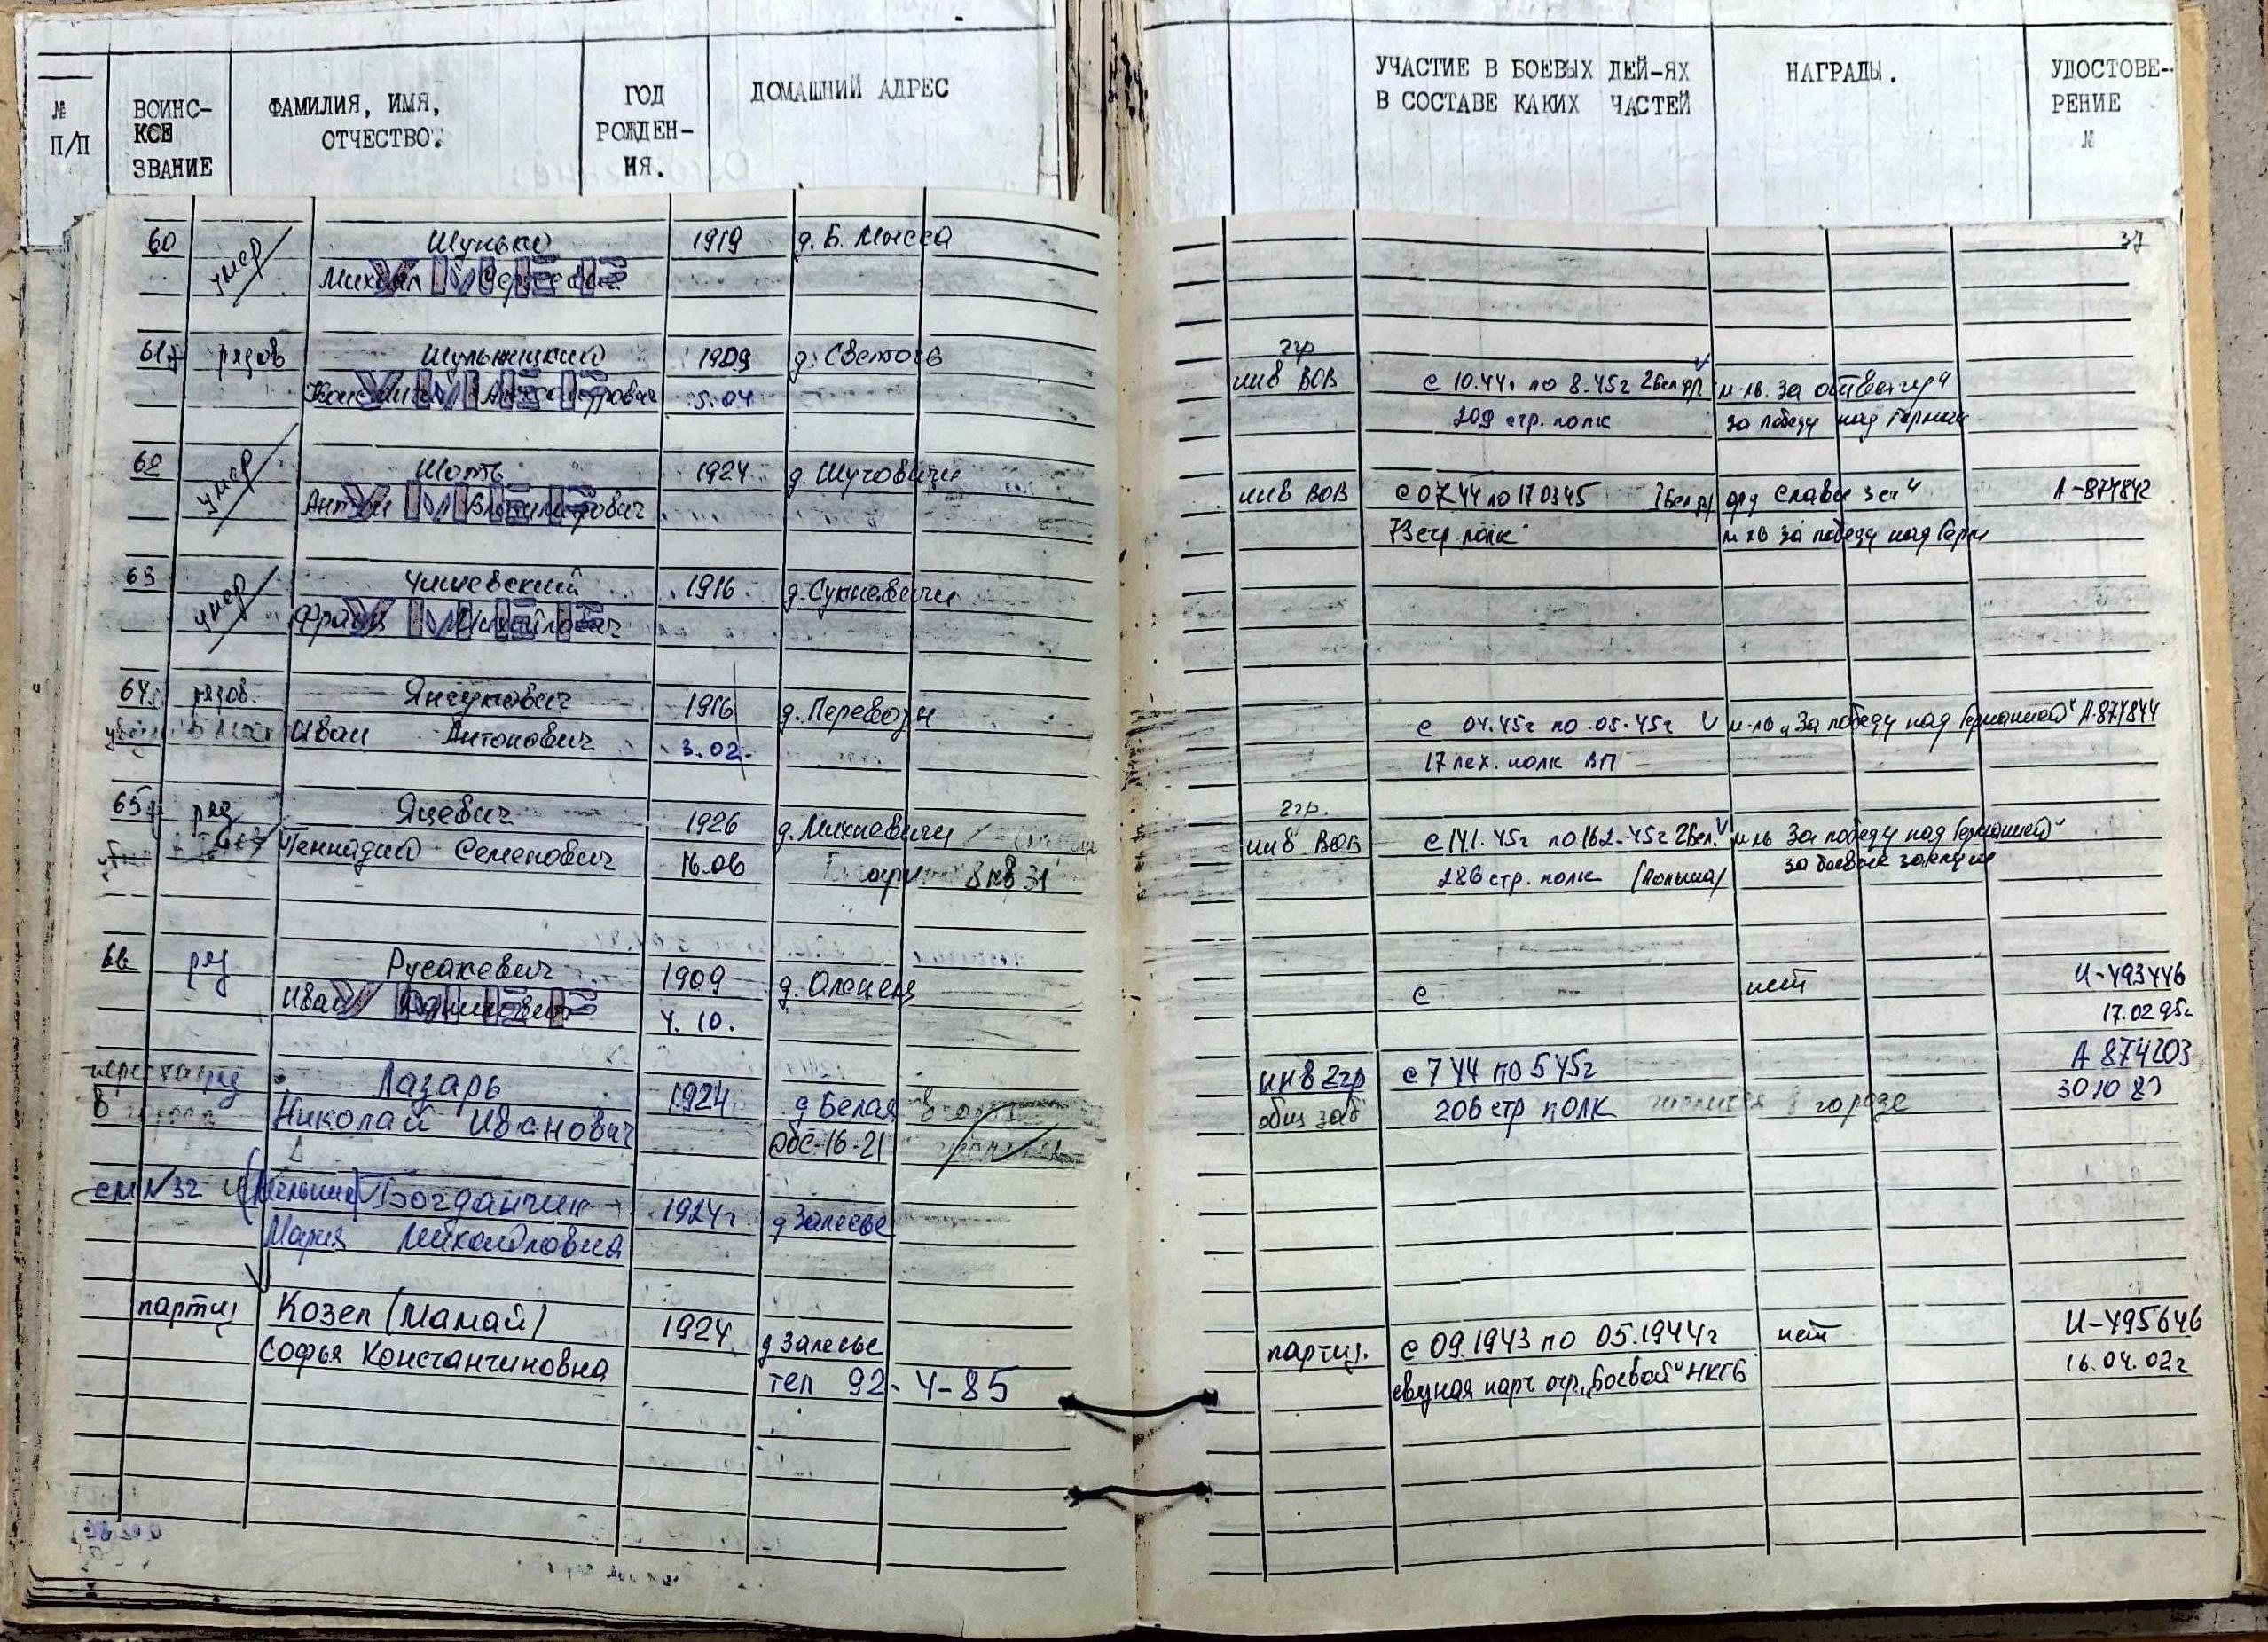 № П/П
ВОИНС-
КОЕ
ЗВАНИЕ
ФАМИЛИЯ, ИМЯ,
ОТЧЕСТВО.
ГОД
РОЖДЕН-
ИЯ.
ДОМАШНИЙ АДРЕС
УЧАСТИЕ В БОЕВЫХ ДЕЙ-ЯХ
В СОСТАВЕ КАКИХ ЧАСТЕЙ
НАГРАДЫ.
УДОСТОВЕ-
РЕНИЕ
№
37
60 умер Шунько 1919 д. Б. Мысса
Михаил Сергеевич
УМЕР
61 рядов Шульжицкий 1909 д.
Константин Александрович 5.04
УМЕР
2гр
инв ВОВ с 10.44г по 8.45г 2 Бел фр. м-ль за отвагу"
209 стр. полк за победу над Герман
62 умер Шоть 1924 д. Шуговичи
Антон Владимирович
УМЕР
инв ВОВ с 07 44 по 17 03 45 орд Славы 3 ст" А-874842
73 стр. полк за победу над Герм
63 умер Чишевский 1916 д. Сукневичи
Франц Михайлович
УМЕР
64 рядов. Янчукович 1916 д. Перевозы
Иван Антонович 3.02.
с 04.45г по .05.45г м-ль „За победу над Германией" А-874844
17 пех. полк ВП
65 ряд Яцевич 1926 д. Михневичи
Геннадий Семенович 16.06 8 кв 31
2гр.
инв ВОВ с 14.1.45г по 16.2.45г 2 Бел. м-ль За победу над Германией"
286 стр. полк (Польша) за боевые заслуги
66 ряд Русакевич 1909 д. Оленец
Иван 4. 10.
УМЕР
с нет И-493446
17.02 95г
ряд Лазарь 1924 д Белая
Николай Иванович Обс-16-21
инв 2гр с 7 44 по 5 45г А 874203
общ заб 206 стр полк числится в городе 30 10 83
см N 32 Богданчик 1924г д Залесье
Мария
партиз Козел (Мамай) 1924 д Залесье
Софья Константиновна тел 92-4-85
партиз. с 09.1943 по 05.1944г нет И-495646
связная парт отр. „Боевой" НКГБ 16.04.02г